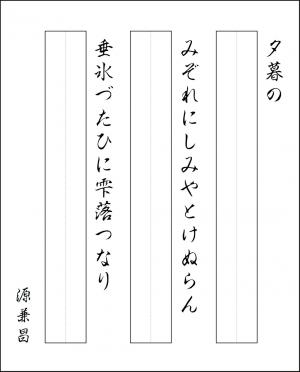 夕暮の
みぞれにしみやとけぬらん
垂氷づたひに雫落つなり
源兼昌